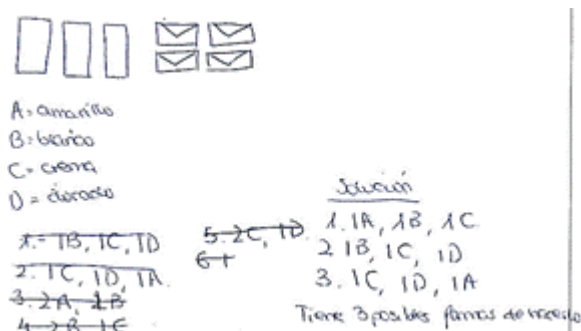 A= amarillo
B= blanco
C= crema
D= dorado
1.- 1B, 1C, 1D
2. 1C, 1D, 1A.
3. 2A, 1B
4. 2B, 1C
5. 2C, 1D
6 1
Solución
1. 1A, 1B, 1C
2 1B, 1C, 1D
3. 1C, 1D, 1A
Tiene 3 posibles formas de hacerlo